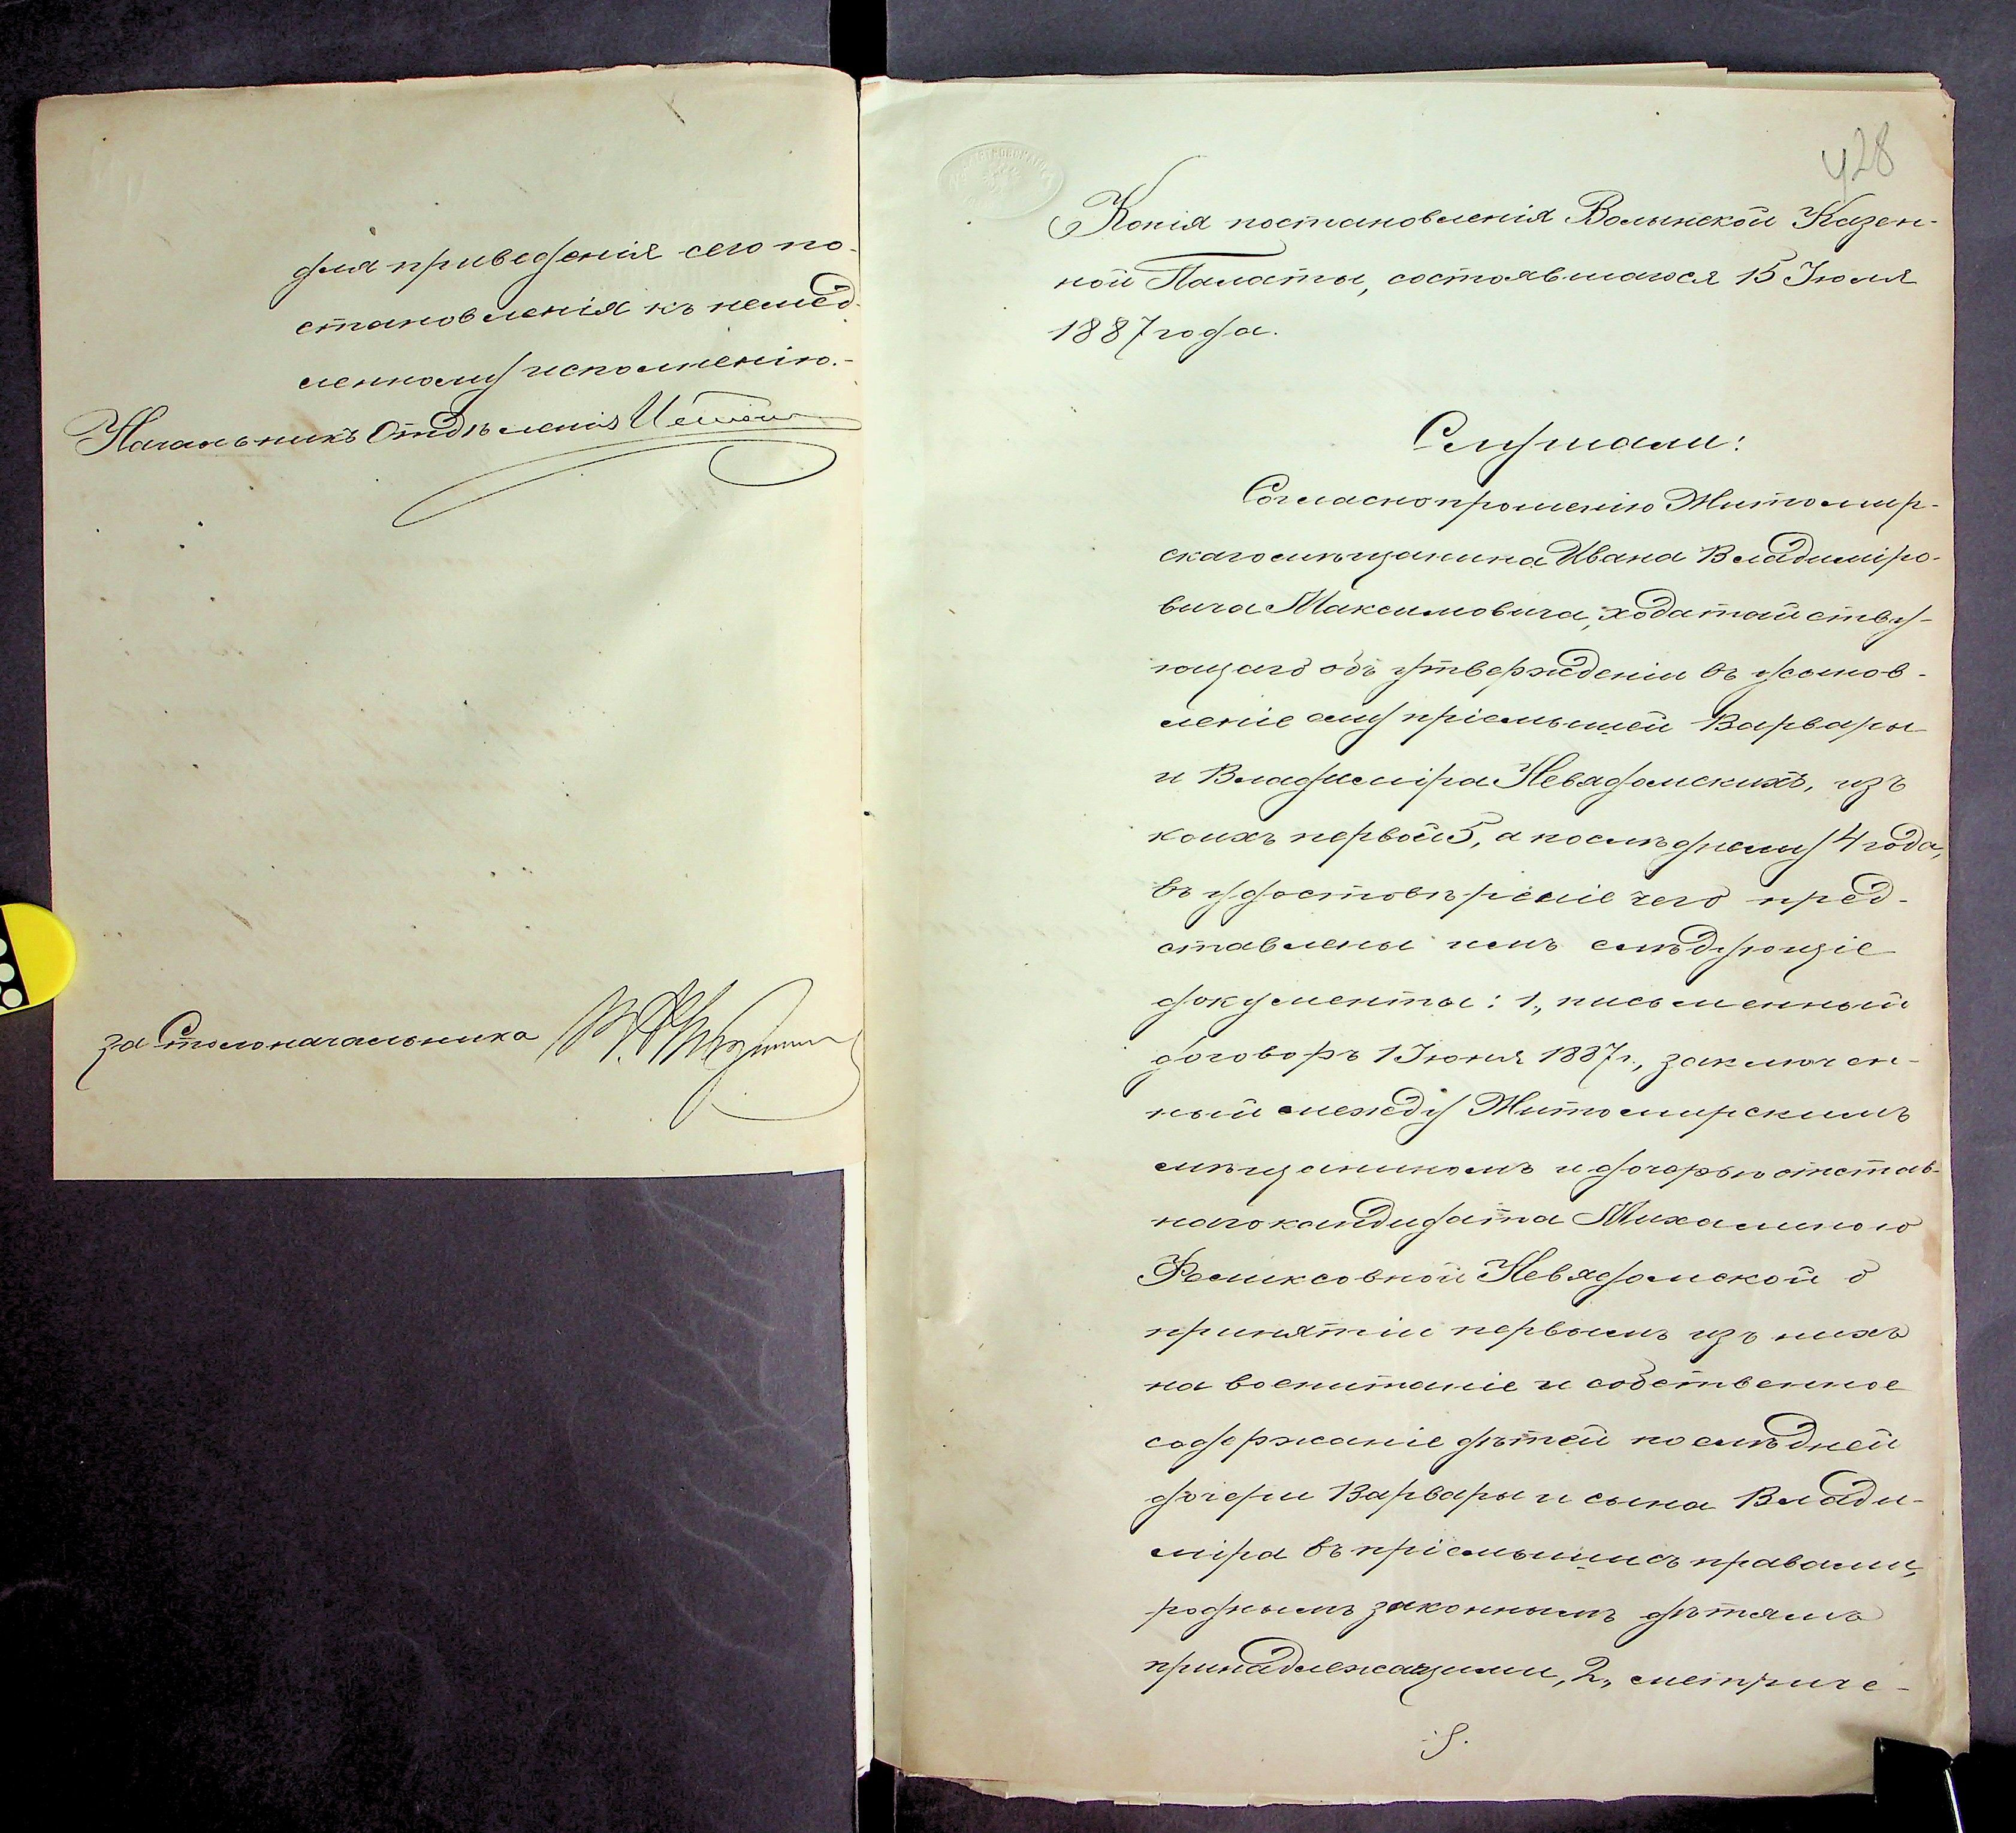 для приведенія сего по-
становленія къ немед-
ленному исполненію.-
Начальникъ Отдѣленія
за Столоначальника
428
Копія постановленія Волынской Казен-
ной Палаты, состоявшагося 15 Іюля
1887 года.
Слушали:
Согласно прошенію Житомир-
скаго мѣщанина Ивана Владиміро-
вича Максимовича, ходатайству-
ющаго объ утвержденіи въ усынов-
леніе ему пріемышей Варвары
и Владиміра Невядомскихъ, изъ
коихъ первой 5, а послѣднему 4 года,
въ удостовѣреніе чего пред-
ставлены имъ слѣдующіе
документы: 1, письменный
договоръ 1 Іюня 1887 г., заключен-
ный между Житомирскимъ
мѣщаниномъ и дочерью отстав-
наго кандидата Михалиною
Феликсовной Невядомской о
принятіи первымъ изъ нихъ
на воспитаніе и собственное
содержаніе дѣтей послѣдней
дочери Варвары и сына Влади-
міра въ пріемыши съ правами,
роднымъ законнымъ дѣтямъ
принадлежащими, 2, метриче-